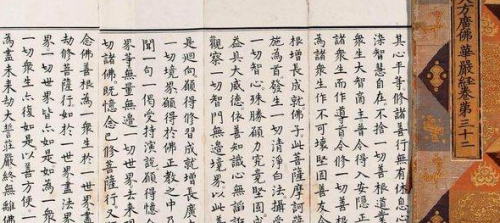 大方廣佛華嚴經卷第三十二
其心平等修諸善行無有休息
染智慧自在不捨一切善根道業
眾生大智商主普令得入安隱正
諸眾生而作導首令修一切善
為諸眾生作不可壞堅固善友令
根增長成就佛子此菩薩摩訶薩
施為首發一切清淨白法攝受
一切智心殊勝願力究竟堅固成
益具大威德依善知識心無諂
觀察一切智門無邊境界以此善
是迴向願得修習成就增長廣
一切境界願得於佛正教之中乃
聞一句一偈受持演說願得憶
界等無量無邊一切世界去來
切諸佛既憶念已修菩薩行又
念佛善根為一眾生於一世界
劫修菩薩行如於一世界盡法界
界一切世界皆亦如是如為一眾
一切眾生亦復如是以善方便
為盡未來劫大誓莊嚴終無離佛